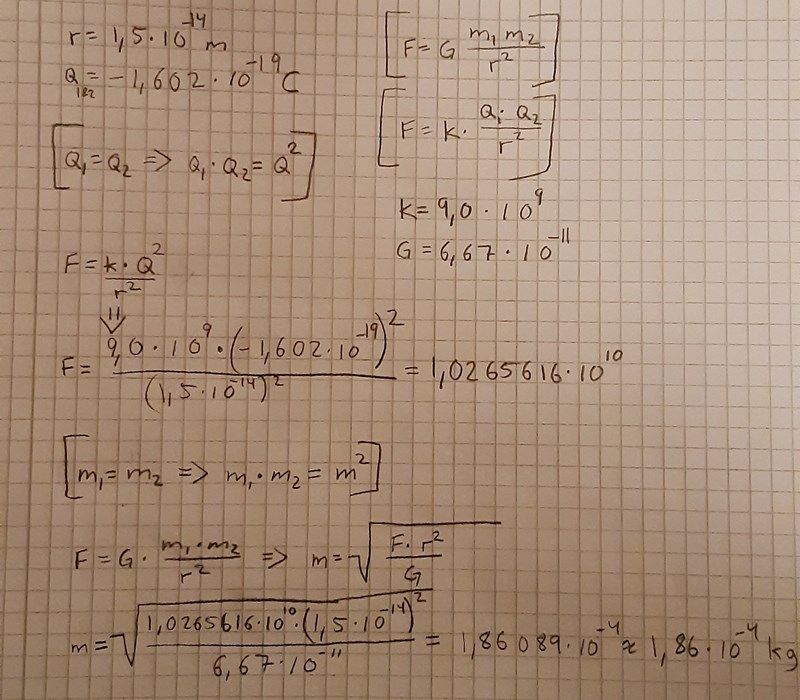 r = 1,5·10^-14 m
Q_1&2 = -1,602·10^-19 C
[Q_1 = Q_2 => Q_1·Q_2 = Q^2]
[F = G m_1 m_2 / r^2]
[F = k· Q_1·Q_2 / r^2]
K = 9,0·10^9
G = 6,67·10^-11
F = k·Q^2 / r^2
⇓
F = 9,0·10^9·(-1,602·10^-19)^2 / (1,5·10^-14)^2 = 1,0265616·10^10
[m_1 = m_2 => m_1·m_2 = m^2]
F = G· m_1·m_2 / r^2 => m = √(F·r^2 / G)
m = √(1,0265616·10^10·(1,5·10^-14)^2 / 6,67·10^-11) = 1,86089·10^-4 ≈ 1,86·10^-4 kg